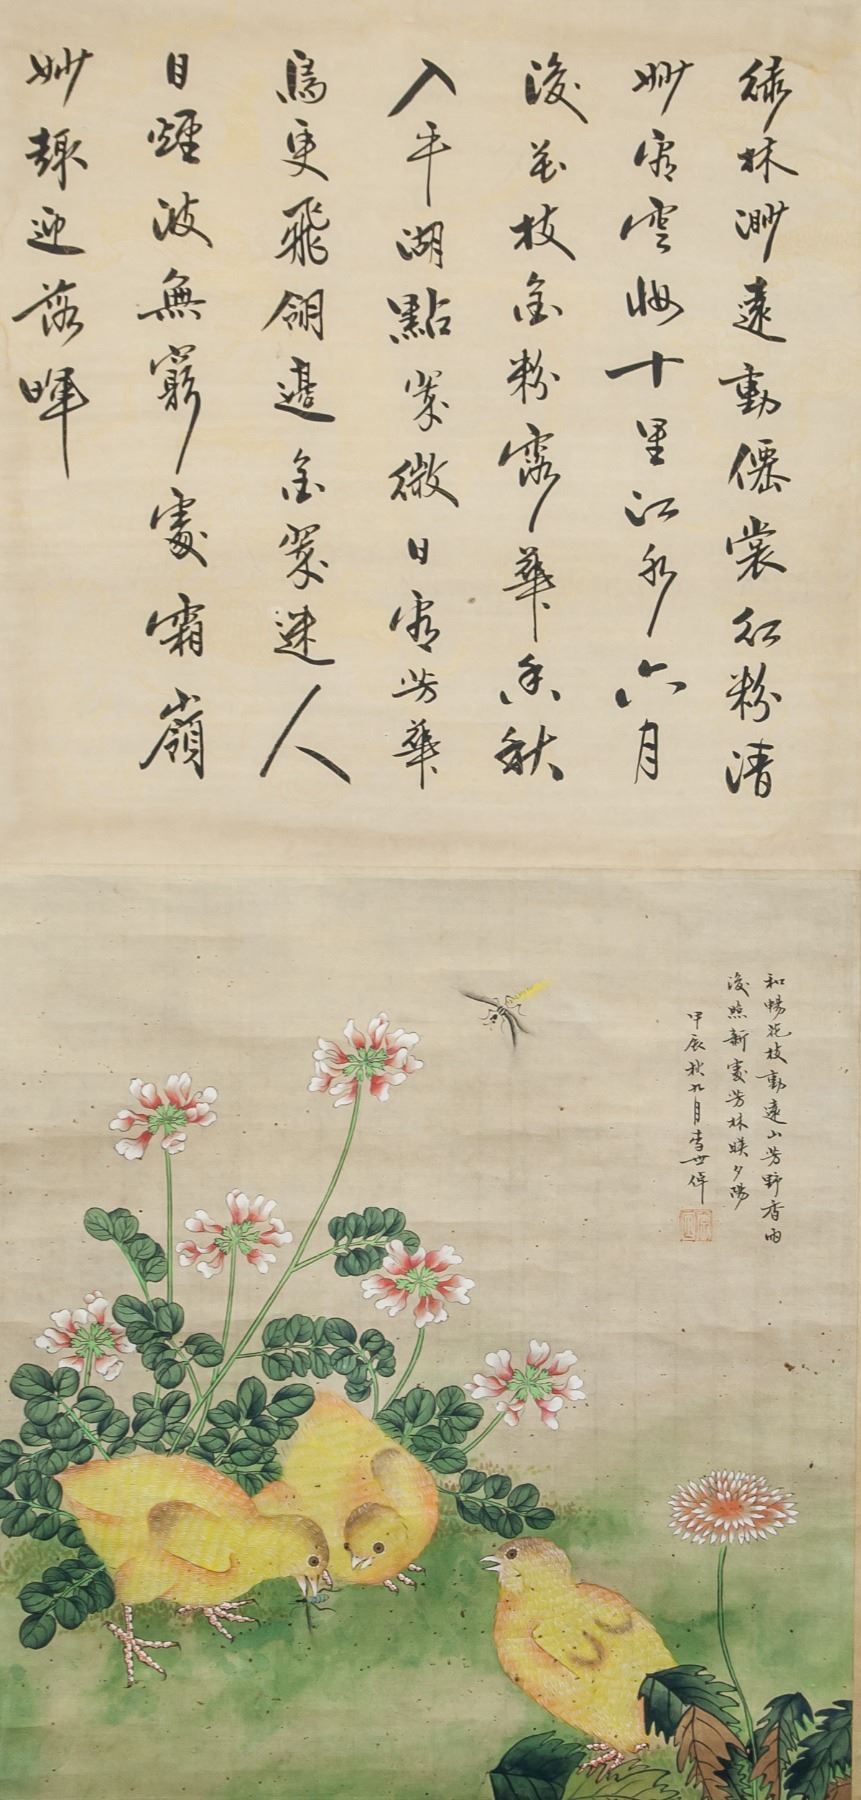 綠林渺遠動僊裳紅粉清
妙霜雲妝十里江水六月
後花枝金粉露華香秋
入平湖點翠微日霜芳華
馬更飛翎邊金翠迷人
目煙波無窮處霜嶺
妙趣迎落暉
和暢花枝動遠山芳野香雨
後照新處芳林映夕陽
甲辰秋九月李世倬